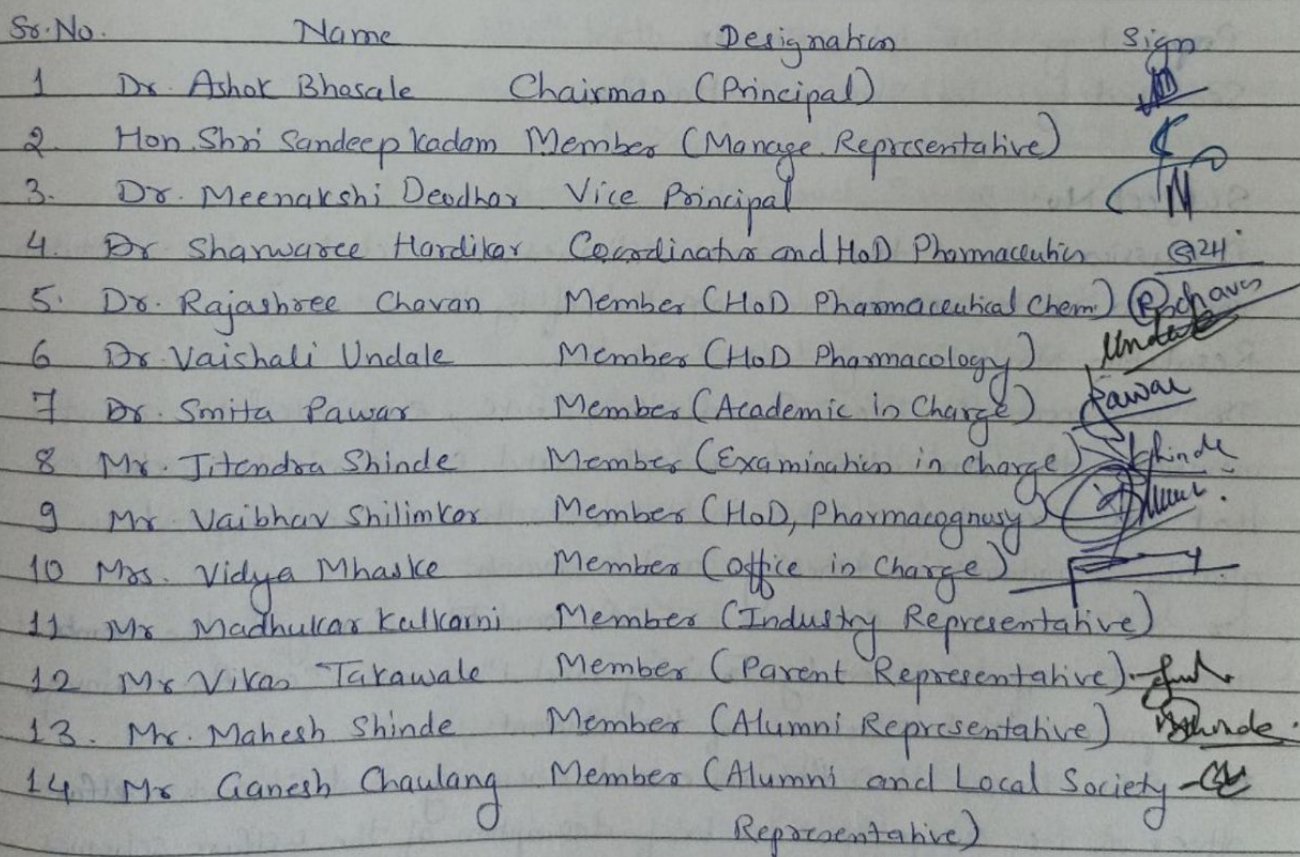 Sr. No. Name Designation Sign
1 Dr. Ashok Bhosale Chairman (Principal)
2. Hon. Shri Sandeep Kadam Member (Manage. Representative)
3. Dr. Meenakshi Deodhar Vice Principal
4. Dr Sharwaree Hardikar Coordinator and HoD Pharmaceutics
5. Dr. Rajashree Chavan Member (HoD Pharmaceutical Chem.) Rschavan
6 Dr. Vaishali Undale Member (HoD Pharmacology) Undale
7 Dr. Smita Pawar Member (Academic in Charge) Pawar
8 Mr. Jitendra Shinde Member (Examination in charge) Shinde
9 Mr Vaibhav Shilimkar Member (HoD, Pharmacognosy)
10 Mrs. Vidya Mhaske Member (office in Charge)
11 Mr Madhukar Kulkarni Member (Industry Representative)
12 Mr Vikas Takawale Member (Parent Representative)
13. Mr. Mahesh Shinde Member (Alumni Representative) Shinde
14 Mr Ganesh Chaulang Member (Alumni and Local Society
Representative)